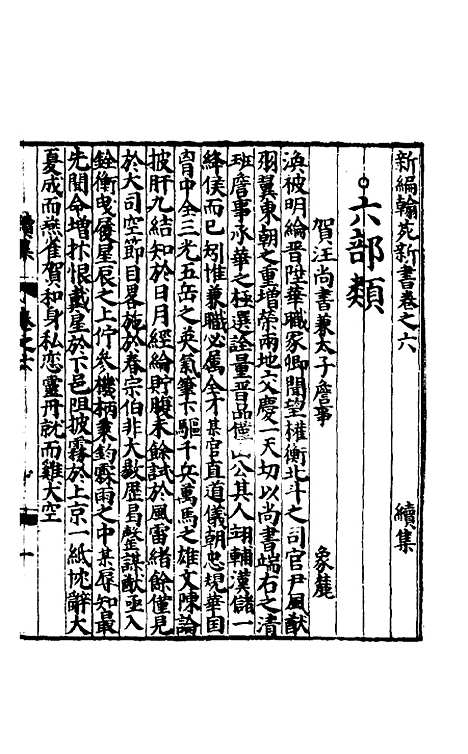 新編翰苑新書卷之六 續集
六部類
賀汪尚書兼太子詹事 象麓
渙被明綸晋陞華職家卿聞望權衡北斗之司官尹風猷
羽翼東朝之重增榮兩地交慶一天切以尚書端右之清
班詹事承華之極選詮量晋品僅山公其人翊輔漢儲一
絳侯而已矧惟兼職必屬全才某官直道儀朝忠規華国
胷中全三光五岳之英氣筆下驅千兵萬馬之雄文陳論
披肝久結知於日月經綸貯腹未餘試於風雷緒餘僅見
於大司空節目畧施於春宗伯非大數歷曷罄謀猷亟入
銓衡曳履星辰之上佇參機柄秉鈞霖雨之中某辱知最
先聞命增抃恨戴星於下邑阻披霧於上京一紙忱辭大
夏成而燕雀賀和身私恋靈丹就而雞犬空